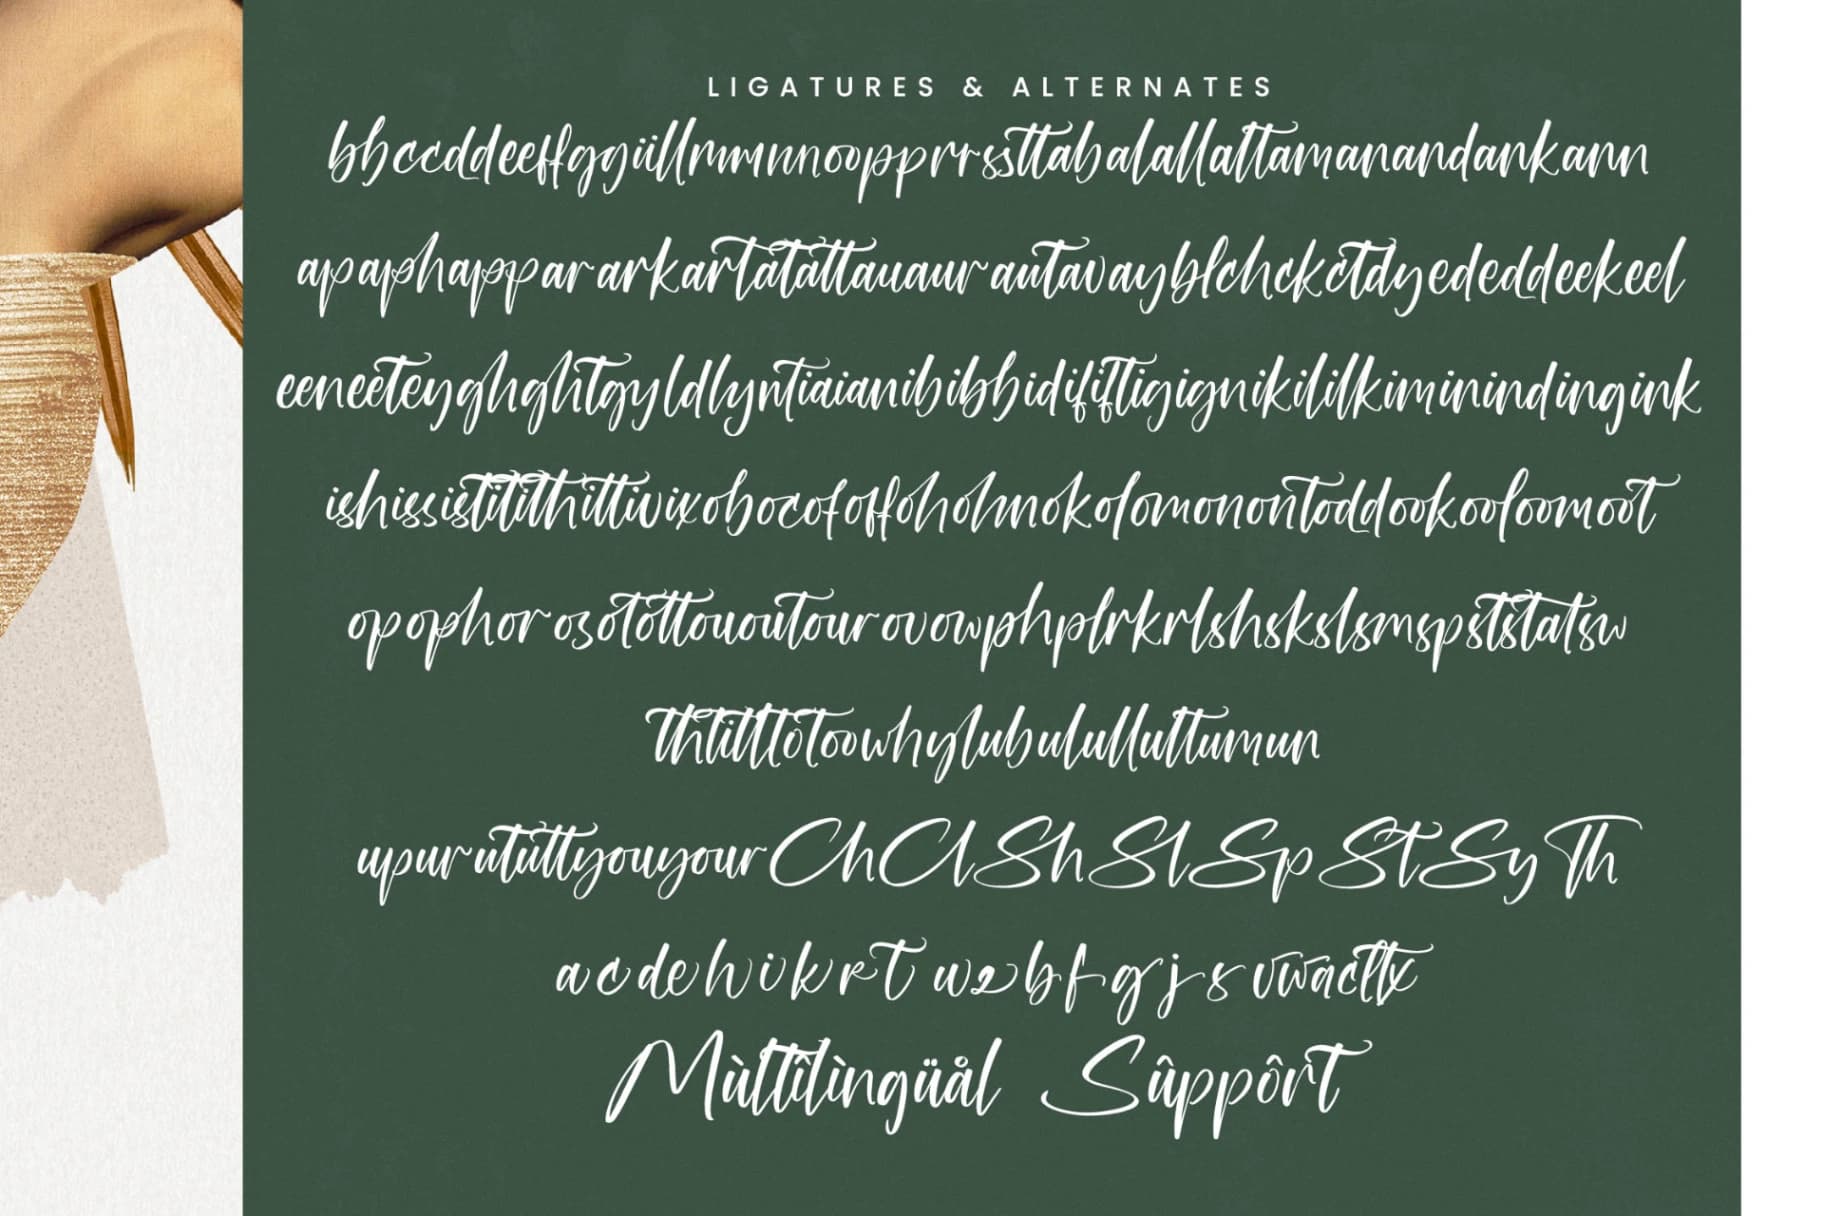 LIGATURES & ALTERNATES
bbccddeeffggiillmmnnoopprrssttabalallattamanandankann
apaphappararkartatattauaurautavayblchckctdyededdeekeel
eeneeteyghghtgyldlyntiaianibibbidififtigignikililkiminindingink
ishissistitithittivixobocofoffohohnokolomonontoddookooloomoot
opophorosotottououtourovowphplrkrlshskslsmspststatsw
thtittltotoowhylubulullulttumun
upurututtyouyourChClShSlSpStSyTh
acdehikrt w2bfgjsvwacltx
Mùltîlìngüål Sûppôrt